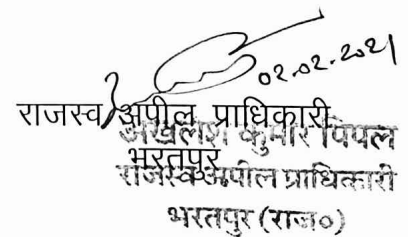 02.02.2021
राजस्व अपील प्राधिकारी
अखिलेश कुमार पिपल
भरतपुर
राजस्व अपील प्राधिकारी
भरतपुर (राज०)